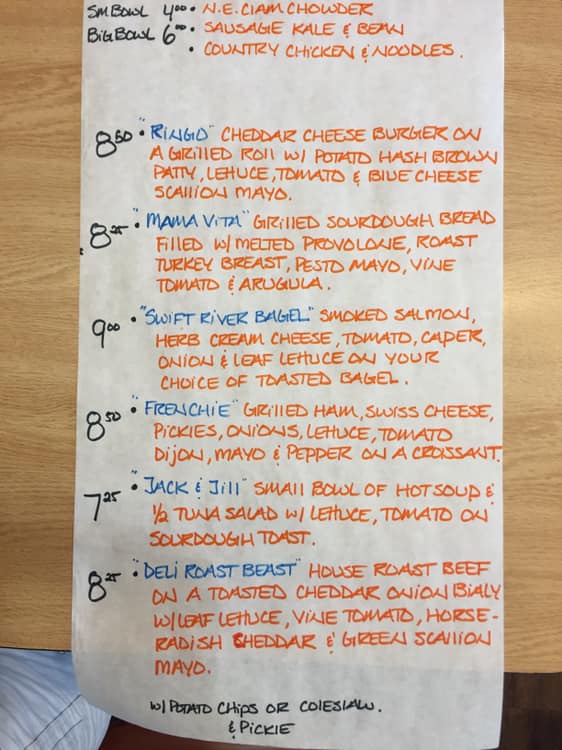 SM BOWL 4.00 • N.E. CLAM CHOWDER
BIG BOWL 6.00 • SAUSAGE KALE & BEAN
• COUNTRY CHICKEN & NOODLES.
8.50 • "RINGO" CHEDDAR CHEESE BURGER ON
A GRILLED ROLL W/ POTATO HASH BROWN
PATTY, LETTUCE, TOMATO & BLUE CHEESE
SCALLION MAYO.
8.25 • "MAMA VITA" GRILLED SOURDOUGH BREAD
FILLED W/ MELTED PROVOLONE, ROAST
TURKEY BREAST, PESTO MAYO, VINE
TOMATO & ARUGULA.
9.00 • "SWIFT RIVER BAGEL" SMOKED SALMON,
HERB CREAM CHEESE, TOMATO, CAPER,
ONION & LEAF LETTUCE ON YOUR
CHOICE OF TOASTED BAGEL.
8.50 • "FRENCHIE" GRILLED HAM, SWISS CHEESE,
PICKLES, ONIONS, LETTUCE, TOMATO
DIJON, MAYO & PEPPER ON A CROISSANT.
7.25 • "JACK & JILL" SMALL BOWL OF HOT SOUP &
1/2 TUNA SALAD W/ LETTUCE, TOMATO ON
SOURDOUGH TOAST.
8.25 • "DELI ROAST BEAST" HOUSE ROAST BEEF
ON A TOASTED CHEDDAR ONION BIALY
W/ LEAF LETTUCE, VINE TOMATO, HORSE-
RADISH CHEDDAR & GREEN SCALLION
MAYO.
W/ POTATO CHIPS OR COLESLAW.
& PICKLE